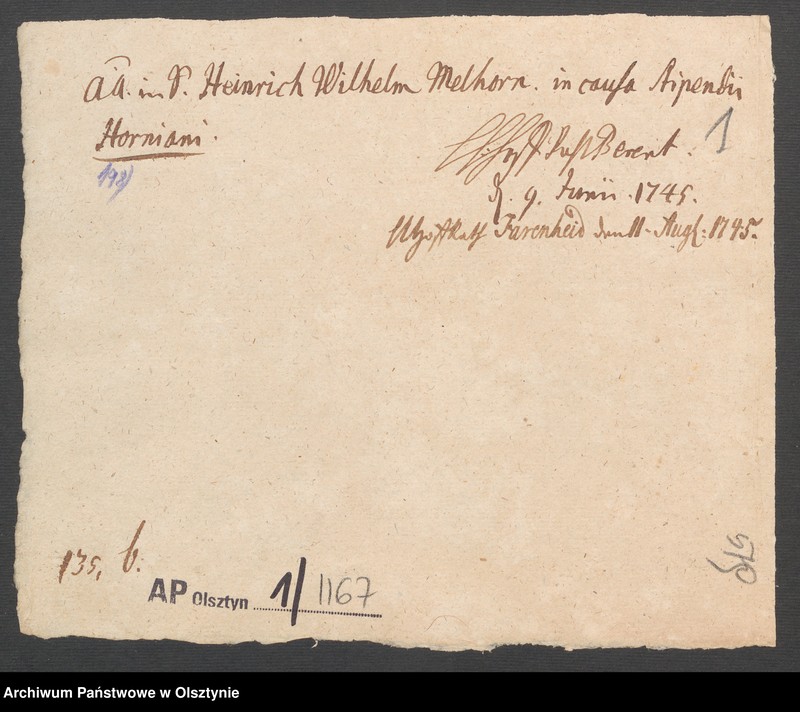 in S. Heinrich Wilhelm Melhorn. in causa Stipendii
Horniani.
1
198)
Berent.
d. 9. Junii. 1745.
Farenheid den 11. Aug: 1745.
135. b.
AP Olsztyn 1/1167
Archiwum Państwowe w Olsztynie